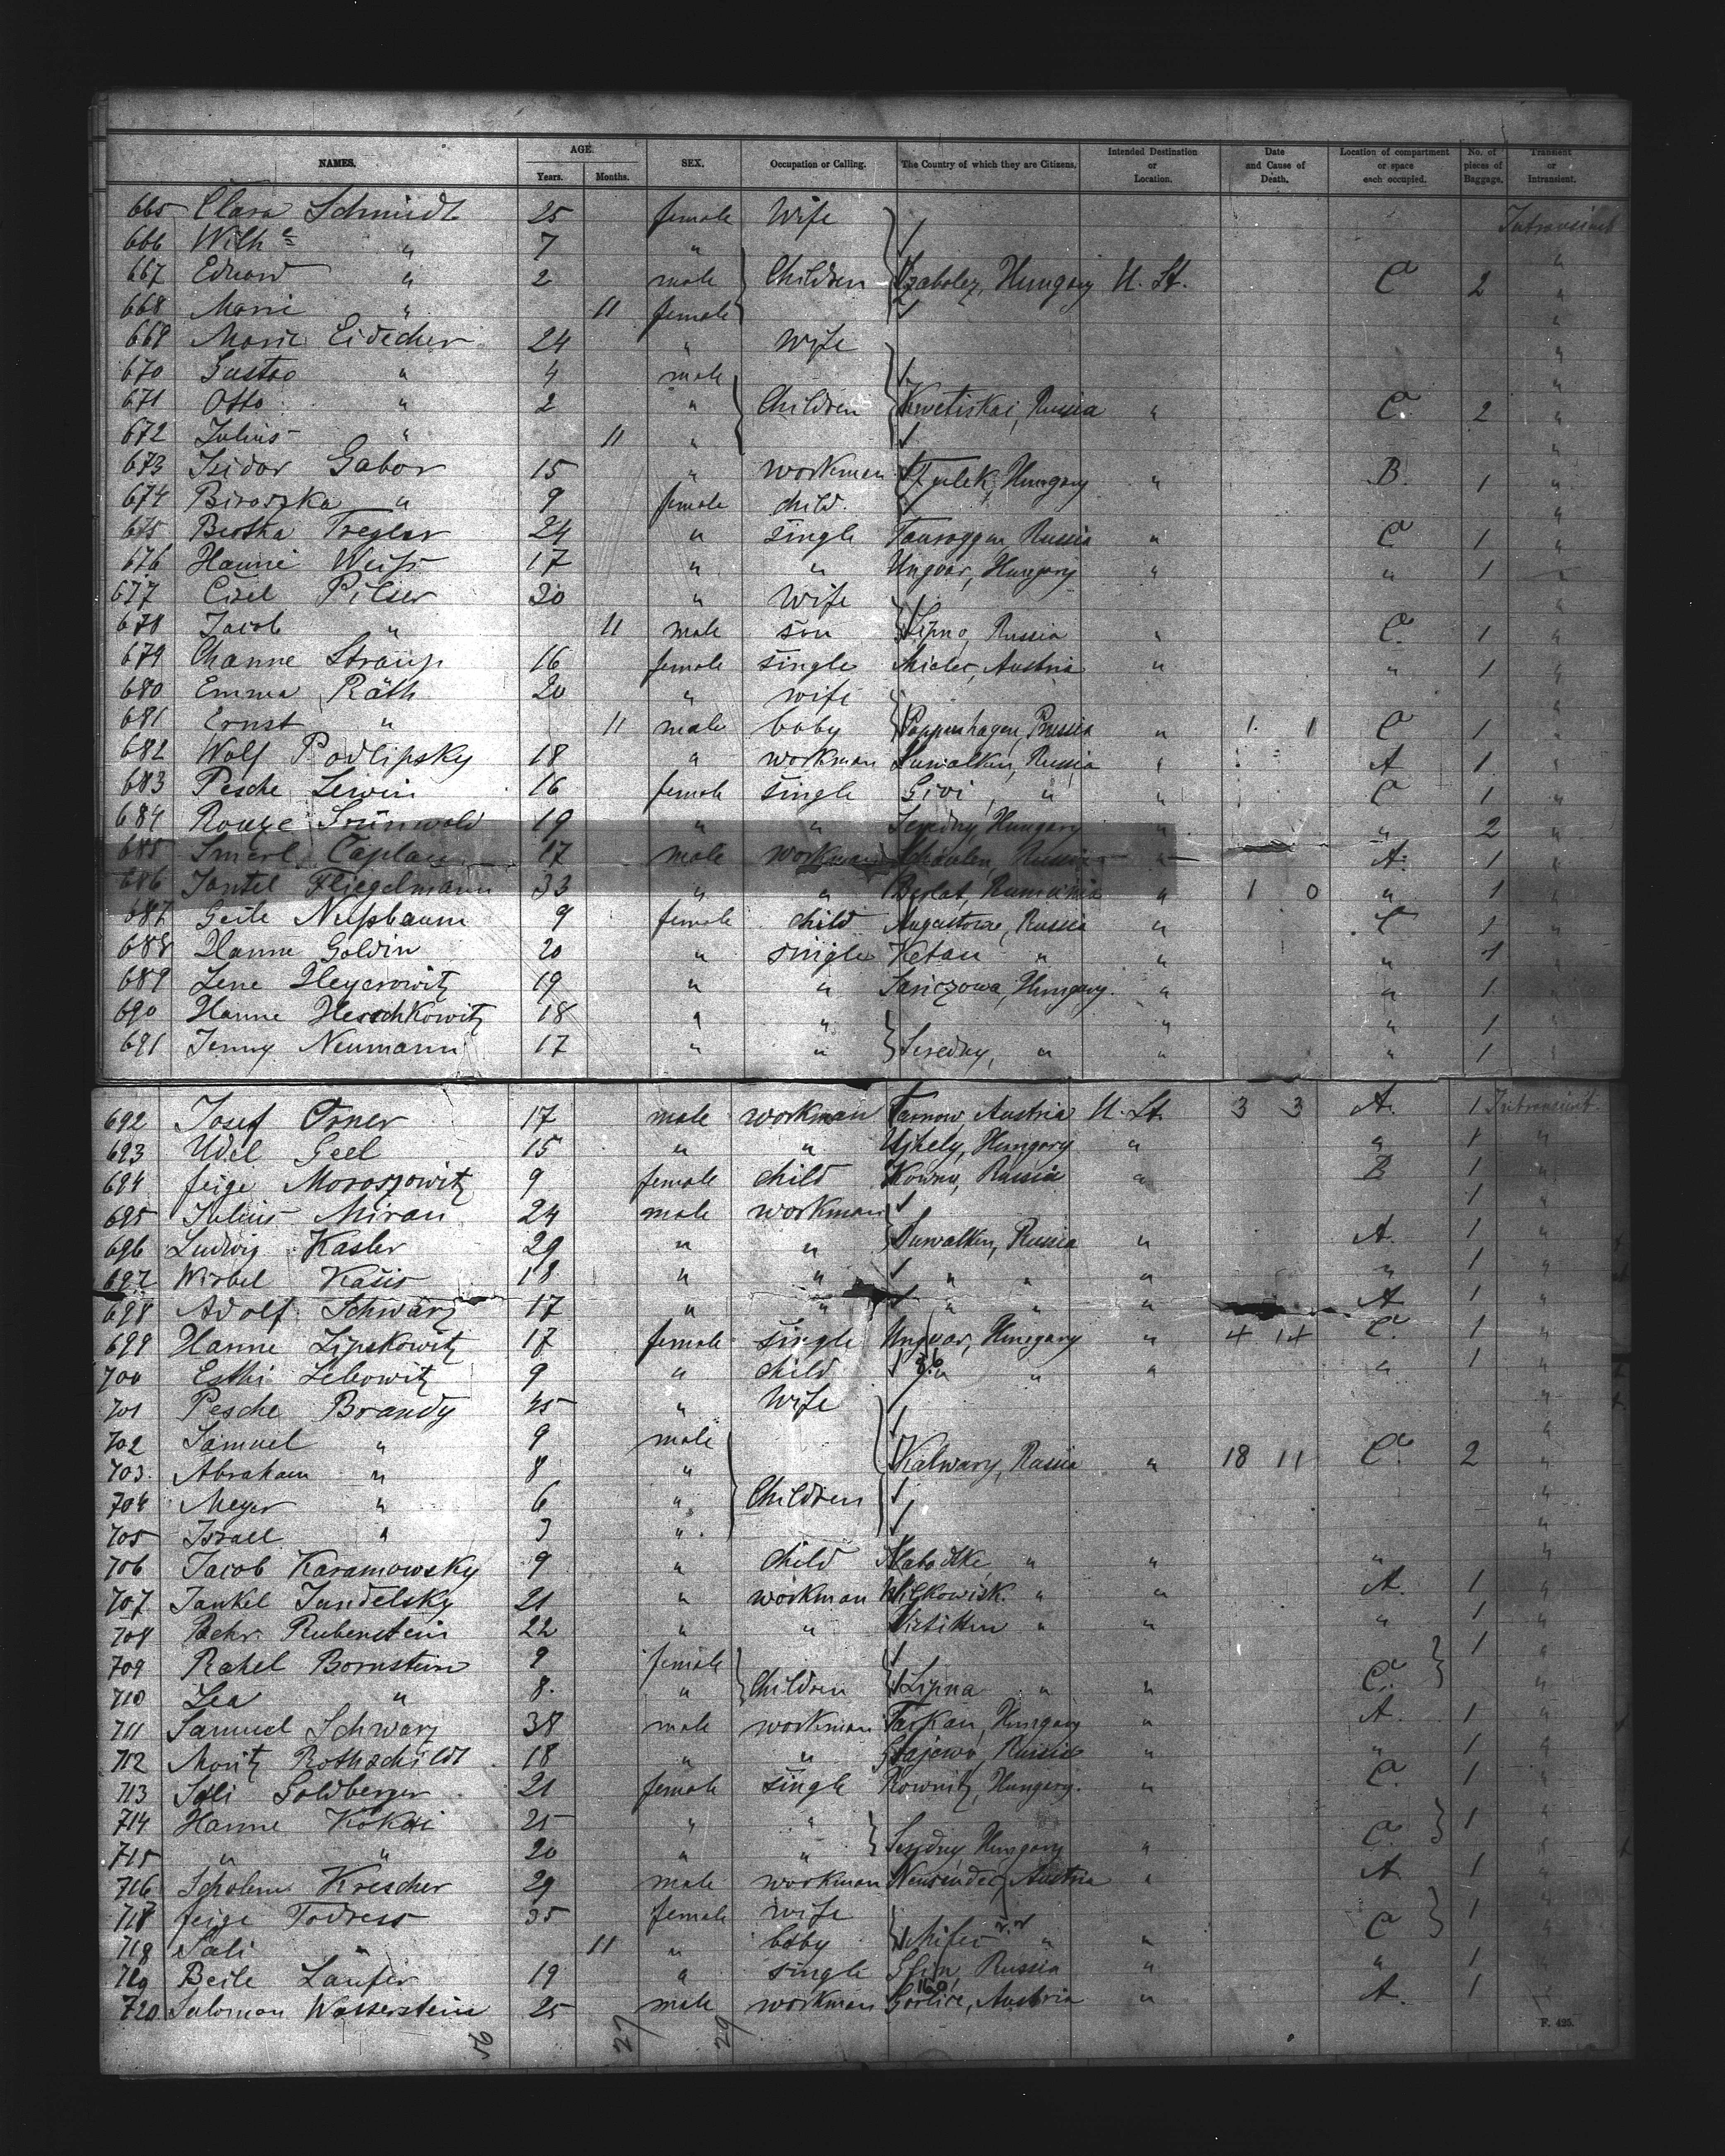 NAMES. AGE. Years. Months. SEX. Occupation or Calling. The Country of which they are Citizens. Intended Destination or Location. Date and Cause of Death. Location of compartment or space each occupied. No. of pieces of Baggage. Transient or Intransient.
665 Clara Schmidt 25 female Wife Intransient
666 Wilhe " 7 " "
667 Eduard " 2 male Children Szabolcz, Hungary U. St. C 2 "
668 Marie " 11 female "
669 Marie Eidecher 24 " Wife "
670 Gustav " 4 male "
671 Otto " 2 " Children Russia " C. 2 "
672 Julius " 11 " "
673 Isidor Gabor 15 " workman Fulek, Hungary " B. 1 "
674 Piroszka " 9 female child. "
675 Bertha Tregler 24 " single Tauroggen Russia " C 1 "
676 Hanni Weiss 17 " " Ungvar, Hungary " " 1 "
677 Pilser 20 " Wife "
678 Jacob " 11 male son Lipno, Russia " C. 1 "
679 Channe 16 female single Mielec, Austria " " 1 "
680 Emma Räth 20 " wife "
681 Ernst " 11 male baby Poppenhagen, Russia " 1 1 C 1 "
682 Wolf Podlipsky 18 " workman Suwalken, Russia " A 1 "
683 Pesche Lewin 16 female single Givi, " " C 1 "
684 Grünwald 19 " " Seredny, Hungary " " 2 "
685 Smerl Caplan 17 male workman Schaulen, Russia " A. 1 "
686 Jankel Fliegelmann 33 " " Berlat, Rumania " 1 0 " 1 "
687 Geile Nussbaum 9 female child Augustowe, Russia " C 1 "
688 Hanne Goldin 20 " single Ketau " " " 1 "
689 Lene 19 " " Hungary. " " 1 "
690 Hanne Herschkowitz 18 " " " " 1 "
691 Jenny Neumann 17 " " Seredny, " " " 1 "
692 Josef Orner 17 male workman Tarnow, Austria U. St. 3 3 A. 1 Intransient
693 Udel Geel 15 " " Ujhely, Hungary " " 1 "
694 Feige Moroszowitz 9 female child Kowno, Russia " B 1 "
695 Julius Miran 24 male workman 1 "
696 Ludwig Kasler 29 " " Suwalken, Russia " A. 1 "
697 18 " " " " " " 1 "
698 Adolf Schwarz 17 " " " " " A 1 "
699 Hanne Lipskowitz 17 female single Ungvar, Hungary " 4 14 C. 1 "
700 Esthi Lebowitz 9 " child " " " " 1 "
701 Pesche Brandy 35 " Wife "
702 Samuel " 9 male "
703. Abraham " 8 " Kalwary, Russia " 18 11 C. 2 "
704 Meyer " 6 " Children "
705 Israel " 3 " "
706 Jacob Karamowsky 9 " child " " " "
707 Jankel Jundelsky 21 " workman Wilkowisk. " " A. 1 "
708 Behr. Rubenstein 22 " " " " " 1 "
709 Rahel Bornstein 9 female 1 "
710 Lea " 8. " Children Lipna " " C. "
711 Samuel Schwarz 38 male workman Hungary " A. 1 "
712 Moritz Rothschildt 18 " " Grajewo, Russia " " 1 "
713 Goldberger 21 female single Hungary. " C. 1 "
714 Hanne Kokai 25 " " 1 "
715 " " 20 " " Seredny, Hungary " C. "
716 Scholem Krescher 29 male workman Neusandec, Austria " A 1 "
717 Feige Todress 35 female wife 1 "
718 Sali " 11 " baby Milec " " C "
719 Beile Laufer 19 " single Russia " " 1 "
720 Salomon Wasserstein 25 male workman Gorlice, Austria " A. 1 "
56 27 29
F. 425.